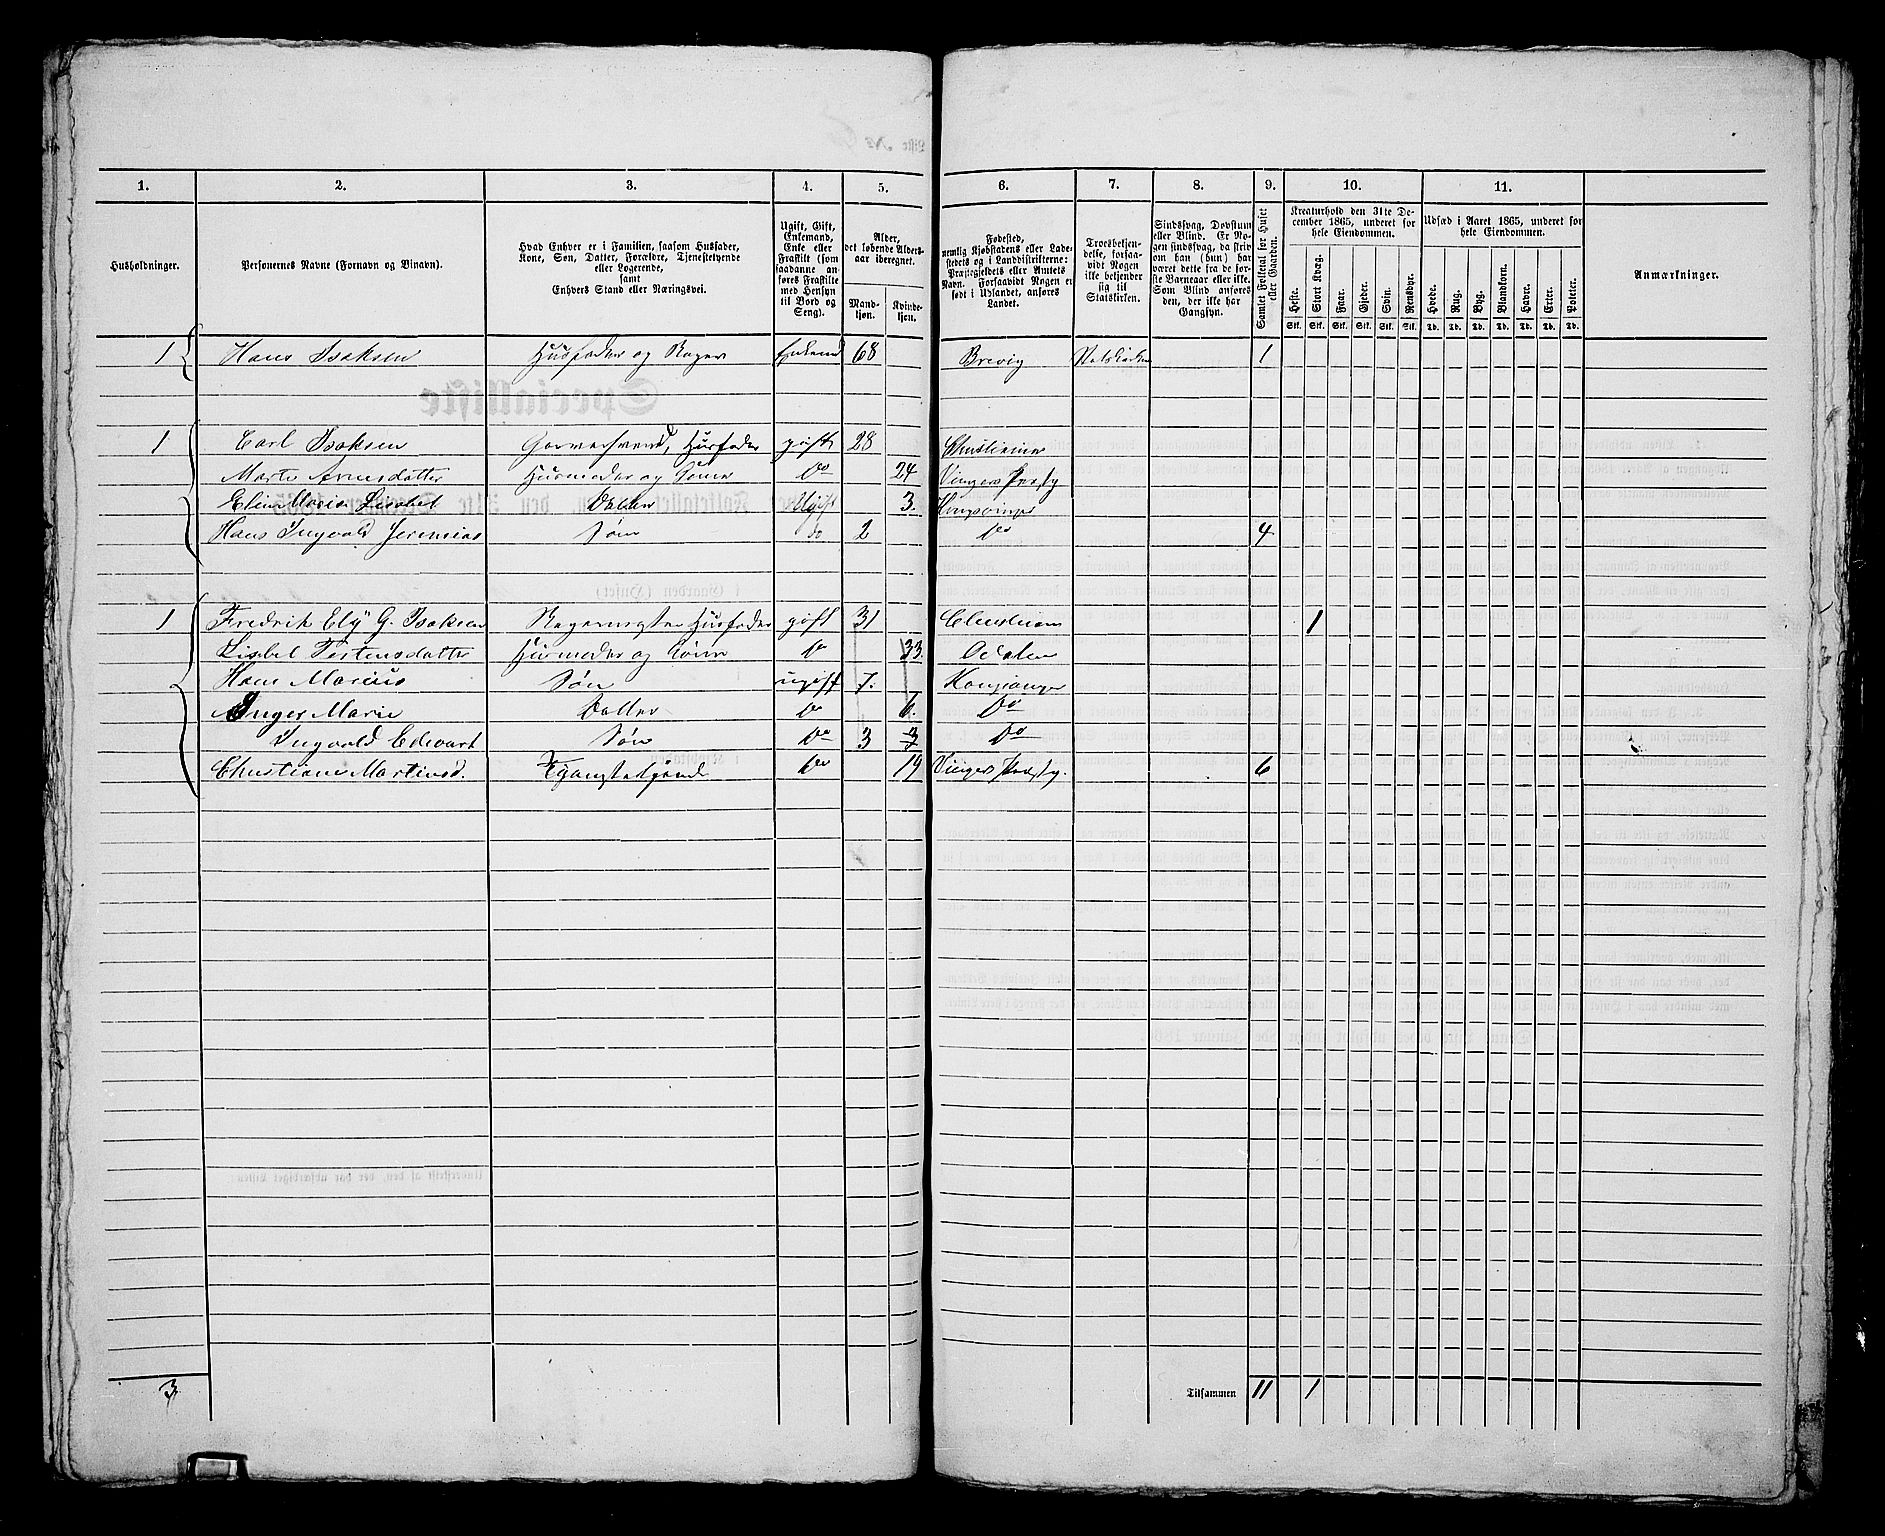 1. 2. 3. 4. 5. 6. 7. 8. 9. 10. 11.
Husholdninger.
Personernes Navne (Fornavn og Binavn).
Hvad Enhver er i Familien, saasom Husfader,
Kone, Søn, Datter, Forældre, Tjenestetyende
eller Logerende,
samt
Enhvers Stand eller Næringsvei.
Ugift, Gift,
Enkemand,
Enke eller
Fraskilt (som
saadanne an-
føres Fraskilte
med Hensyn
til Bord og
Seng).
Alder,
det løbende Alders-
aar iberegnet.
Mand-
kjøn.
Kvinde-
kjøn.
Fødested,
nemlig Kjøbstadens eller Lade-
stedets og i Landdistrikterne:
Præstegjeldets eller Amtets
Navn. Forsaavidt Nogen er
født i Udlandet, anføres
Landet.
Troesbekjen-
delse, forsaa-
vidt Nogen
ikke bekjender
sig til
Statskirken.
Sindssvag, Døvstum
eller Blind. Er No-
gen sindssvag, da skriv
om han (hun) har
været dette fra de før-
ste Barneaar eller ikke.
Som Blind anføres
den, der ikke har
Gangsyn.
Samlet Folketal for Huset
eller Gaarden.
Kreaturhold den 31te De-
cember 1865, underet for
hele Eiendommen.
Heste. Stort Kvæg. Faar. Gjeder. Svin. Rensdyr.
Stk. Stk. Stk. Stk. Stk. Stk.
Udsæd i Aaret 1865, underet for
hele Eiendommen.
Hvede. Rug. Byg. Blandkorn. Havre. Erter. Poteter.
Td. Td. Td. Td. Td. Td. Td.
Anmærkninger.
1 Hans Isaksen Husfader og Bager Enkemd 68 Brevig Statskirken 1
1 Carl Isaksen Garversvend, Husfader gift 28 Christiania
Marte Arnesdatter Husmoder og Kone Do 24 Vinger
Elen Maria Lisabet Datter Ugift 3. Kongsvinger
Hans Ingvald Jeremias Søn do 2 Do 4
1 Fredrik Ely G. Isaksen Bagermester Husfader gift 31 Christiania 1
Lisbet Tostensdatter Husmoder og Kone Do 33. Odalen
Hans Marius Søn ugift 7. Kongsvinger
Inger Marie Datter Do 6. Do
Ingvald Edevart Søn Do 3 3 Do
Christiane Martinsd. Do 19 Vinger 6
3 Tilsammen 11 1